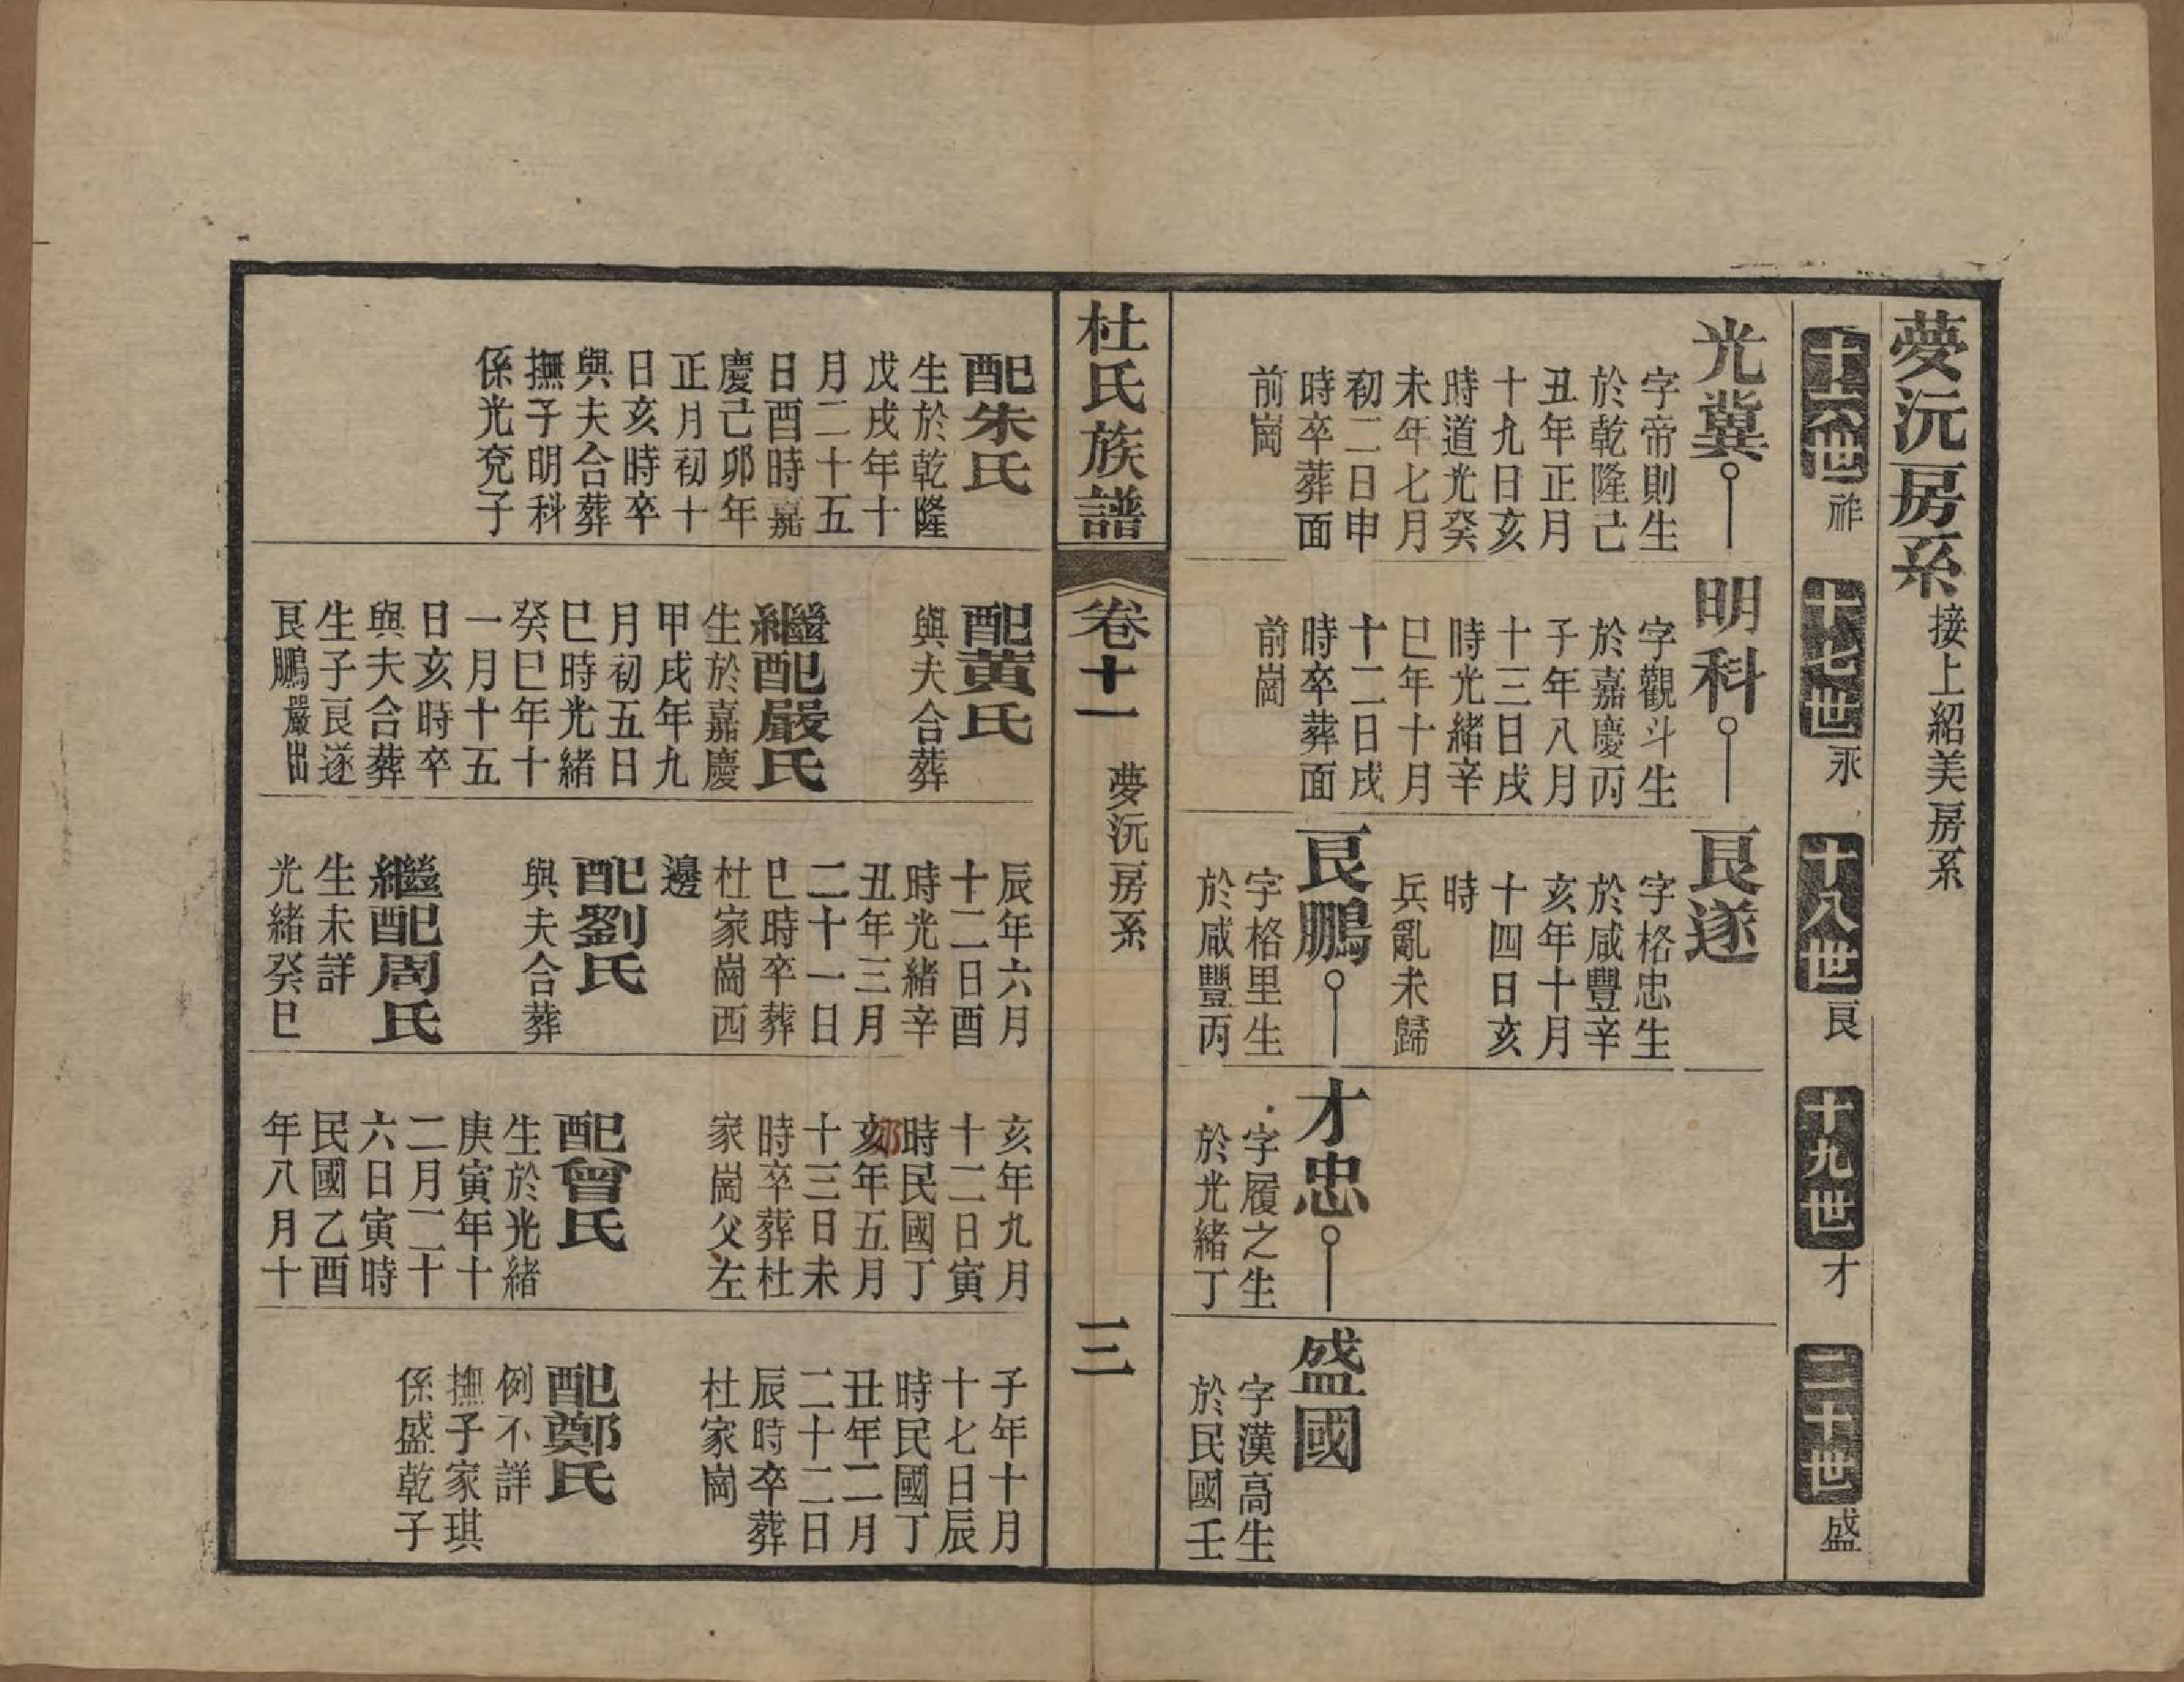 夢沅房系接上紹美房系
十六世祚
十七世永
十八世良
十九世才
二十世盛
光冀
字帝則生
於乾隆己
丑年正月
十九日亥
時道光癸
未年七月
初二日申
時卒葬面
前崗
明科
字觀斗生
於嘉慶丙
子年八月
十三日戌
時光緒辛
巳年十月
十二日戌
時卒葬面
前崗
良遂
字格忠生
於咸豐辛
亥年十月
十四日亥
時
兵亂未歸
良鵬
字格里生
於咸豐丙
才忠
字履之生
於光緒丁
盛國
字漢高生
於民國壬
杜氏族譜
卷十一
夢沅房系
三
配朱氏
生於乾隆
戊戌年十
月二十五
日酉時嘉
慶己卯年
正月初十
日亥時卒
與夫合葬
撫子明科
係光兗子
配黃氏
與夫合葬
繼配嚴氏
生於嘉慶
甲戌年九
月初五日
巳時光緒
癸巳年十
一月十五
日亥時卒
與夫合葬
生子良遂
良鵬嚴出
辰年六月
十二日酉
時光緒辛
丑年三月
二十一日
巳時卒葬
杜家崗西
邊
配劉氏
與夫合葬
繼配周氏
生未詳
光緒癸巳
亥年九月
十二日寅
時民國丁
亥年五月
十三日未
時卒葬杜
家崗父左
配曾氏
生於光緒
庚寅年十
二月二十
六日寅時
民國乙酉
年八月十
子年十月
十七日辰
時民國丁
丑年二月
二十二日
辰時卒葬
杜家崗
配鄭氏
例不詳
撫子家琪
係盛乾子